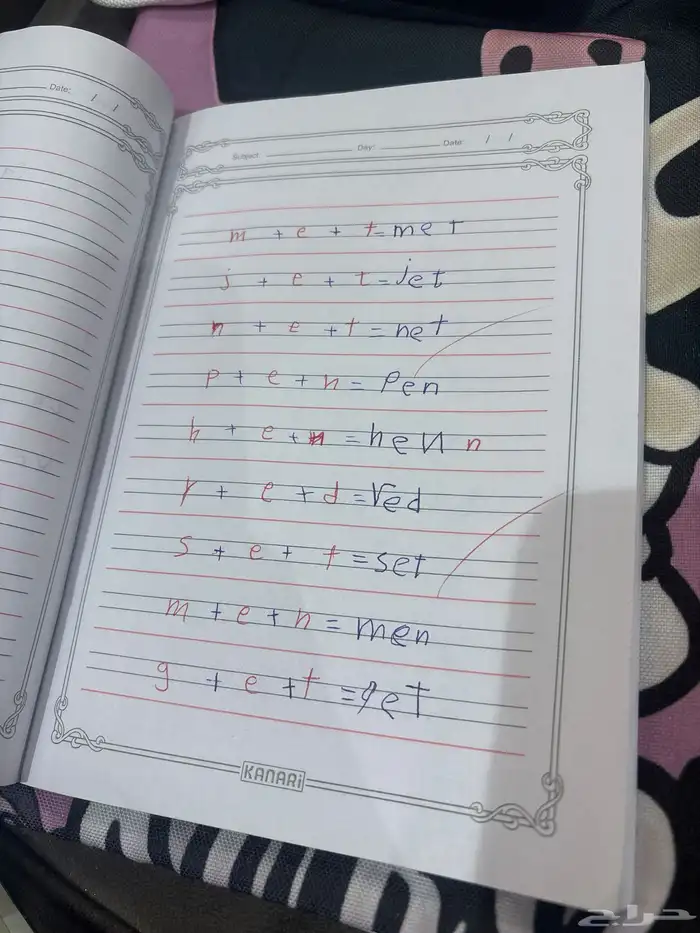 Date: / /
Subject Day: Date: / /
m + e + t = met
j + e + t = jet
n + e + t = net
p + e + n = Pen
h + e + n = heN n
r + e + d = red
s + e + t = set
m + e + n = men
g + e + t = get
KANARi
حراج